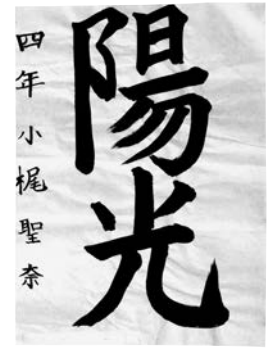 陽光
四年 小梶聖奈